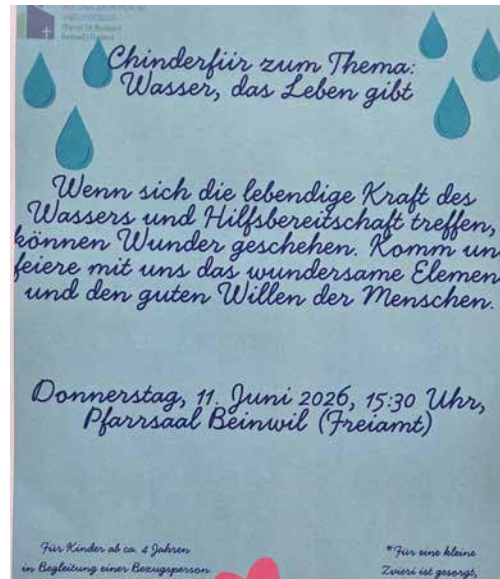 Chinderfiir zum Thema:
Wasser, das Leben gibt
Wenn sich die lebendige Kraft des
Wassers und Hilfsbereitschaft treffen,
können Wunder geschehen. Komm un
feiere mit uns das wundersame Elemen
und den guten Willen der Menschen.
Donnerstag, 11. Juni 2026, 15:30 Uhr,
Pfarrsaal Beinwil (Freiamt)
Für Kinder ab ca. 4 Jahren
in Begleitung einer Bezugsperson
*Für eine kleine
Zvieri ist gesorgt,